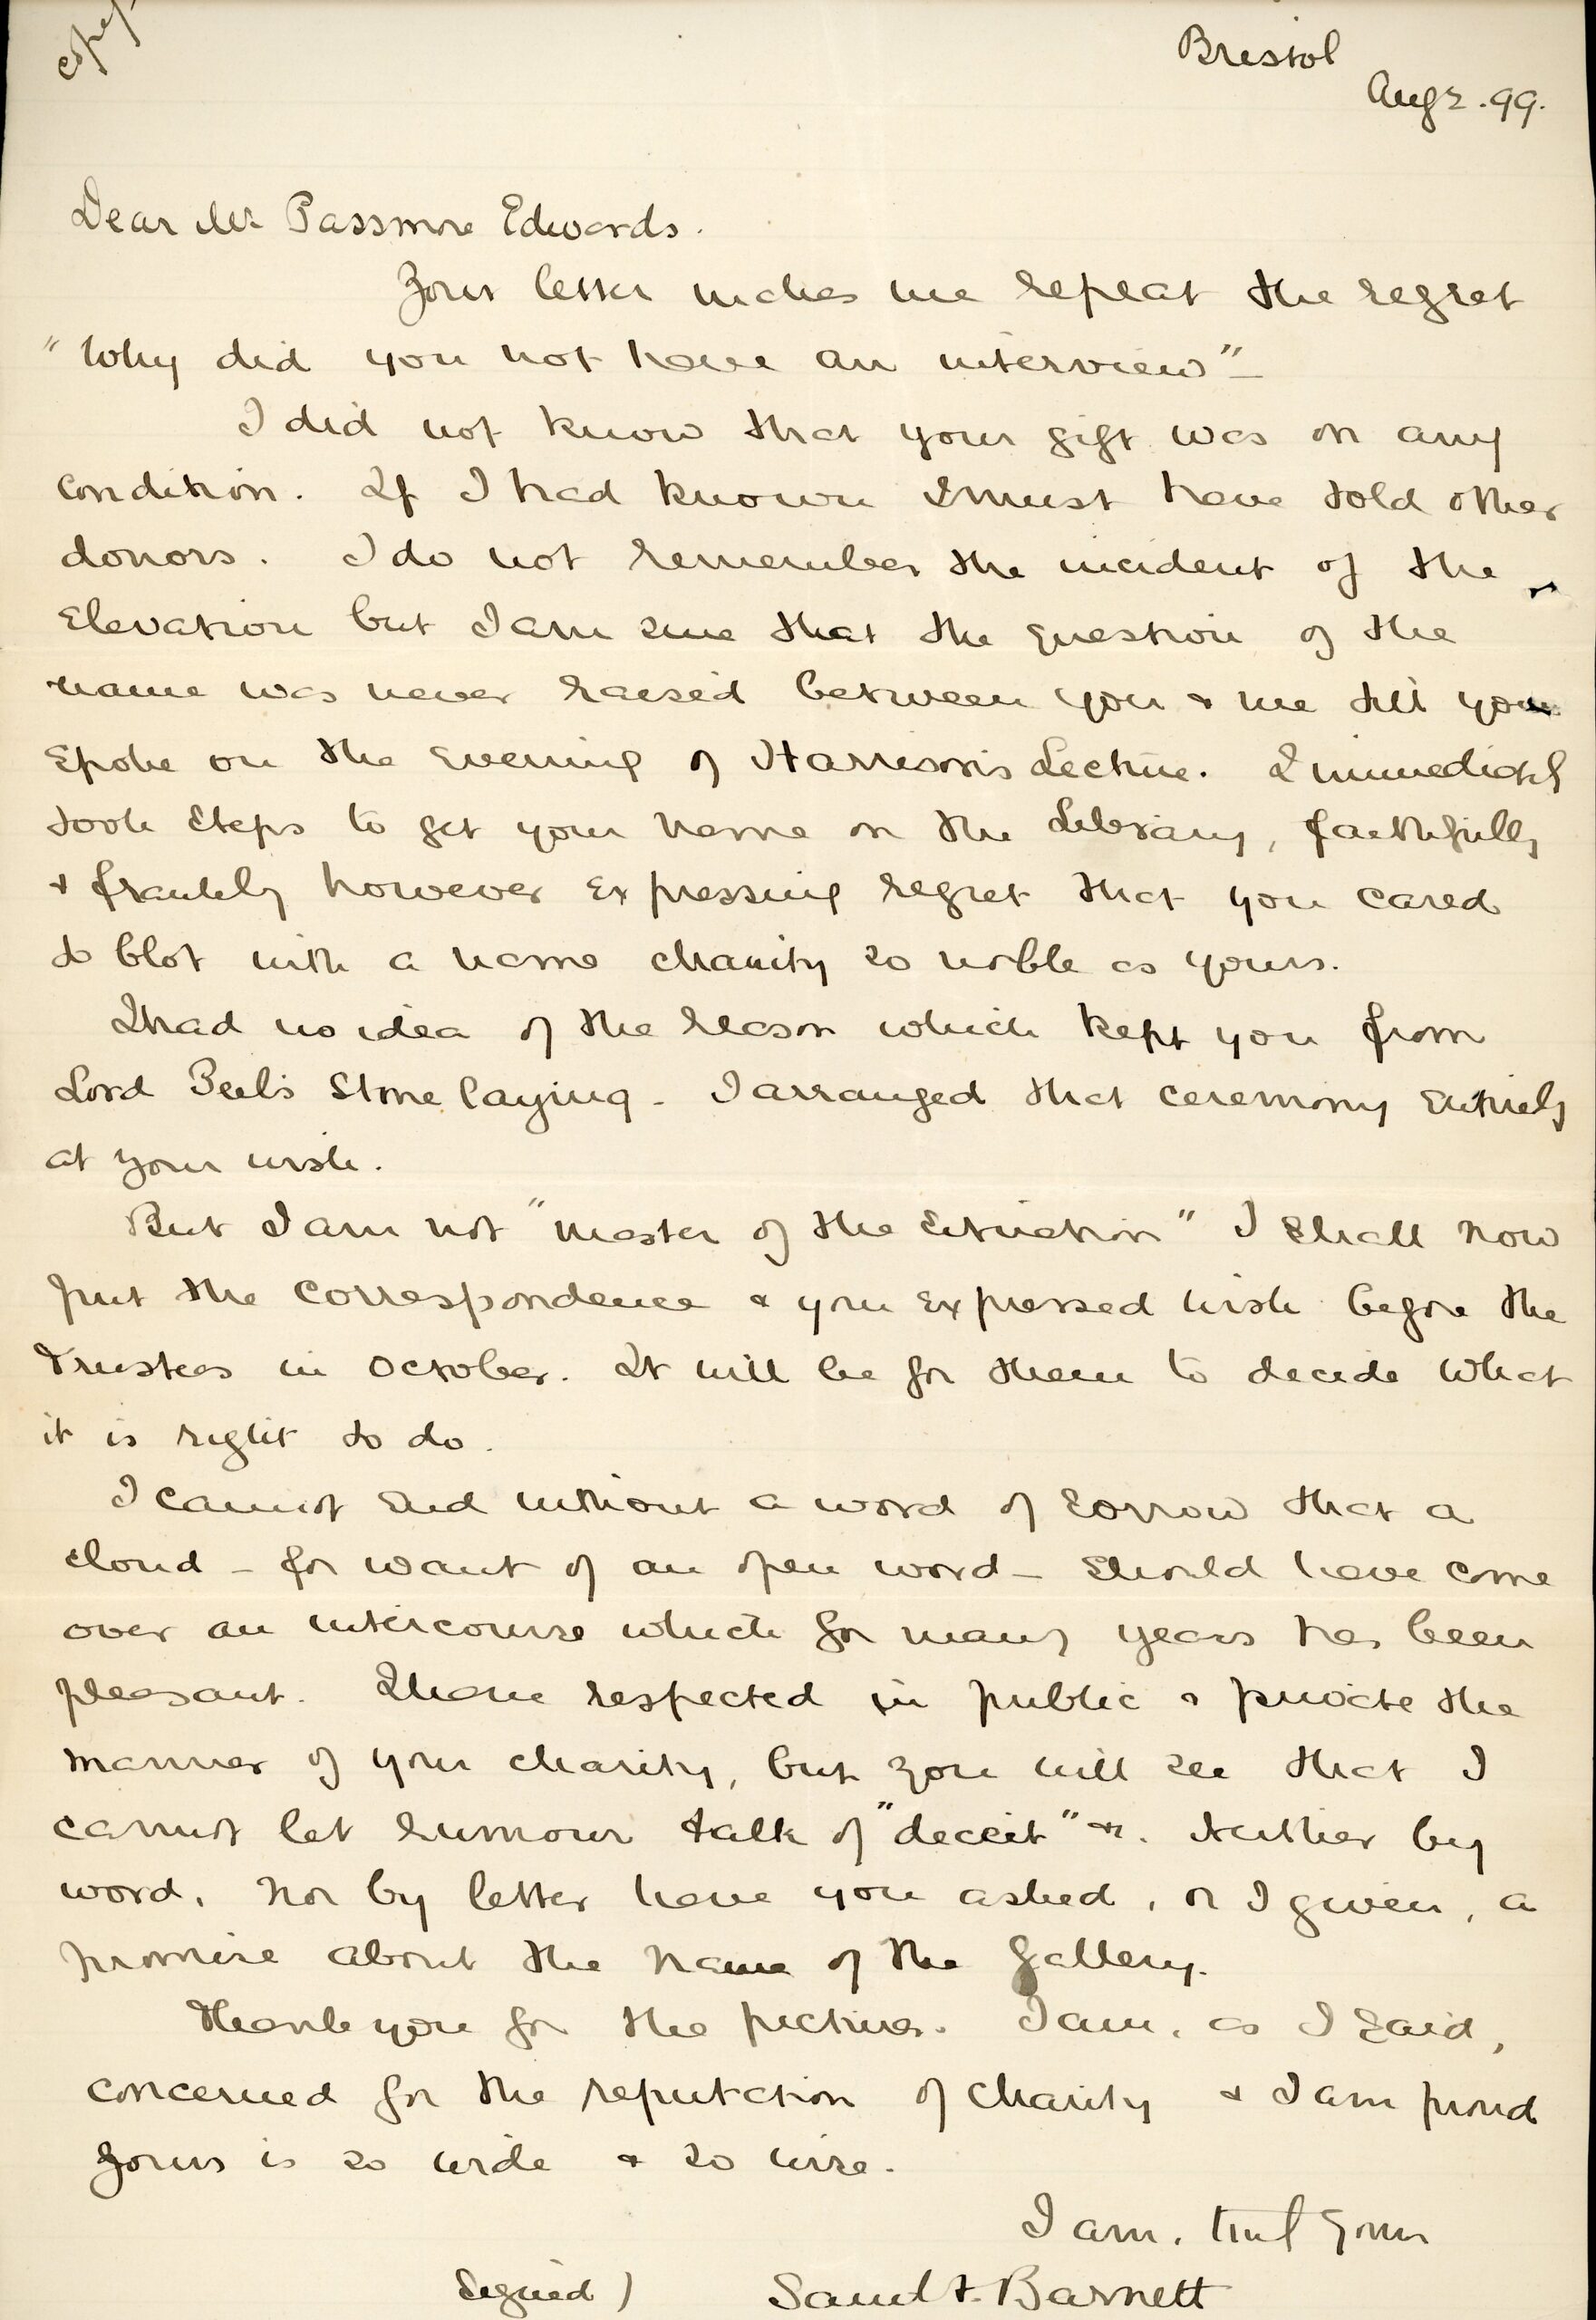 copy
Bristol
Aug 2 . 99.
Dear Mr Passmore Edwards.
Your letter makes me repeat the regret
"Why did you not have an interview" –
I did not know that your gift was on any
condition. If I had known I must have told other
donors. I do not remember the incident of the
elevation but I am sure that the question of the
name was never raised between you & me till you
spoke on the evening of Harrison's Lecture. I immediately
took steps to get your name on the Library, faithfully
& frankly however expressing regret that you cared
to blot with a name charity so noble as yours.
I had no idea of the reason which kept you from
Lord Peel's Stone laying - I arranged that ceremony entirely
at your wish.
But I am not "master of the situation" I shall now
put the correspondence & your expressed wish before the
Trustees in October. It will be for them to decide what
it is right to do.
I cannot end without a word of sorrow that a
cloud - for want of an open word - should have come
over an intercourse which for many years has been
pleasant. I have respected in public & private the
manner of your charity, but you will see that I
cannot let rumour talk of "deceit" &c. Neither by
word, nor by letter have you asked, or I given, a
promise about the name of the Gallery.
Thank you for the pictures. I am, as I said,
concerned for the reputation of charity & I am proud
yours is so wide & so wise.
I am, truly yours
Signed) Saml A. Barnett